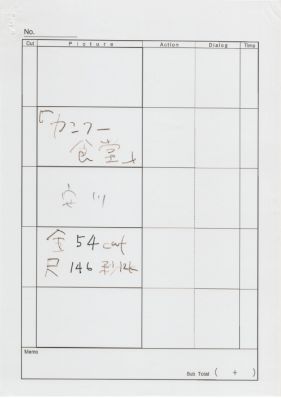 No.
Cut Picture Action Dialog Time
「カンフー
食堂」
安川
全 54 cut
尺 146秒12k
Memo
Sub Total ( + )